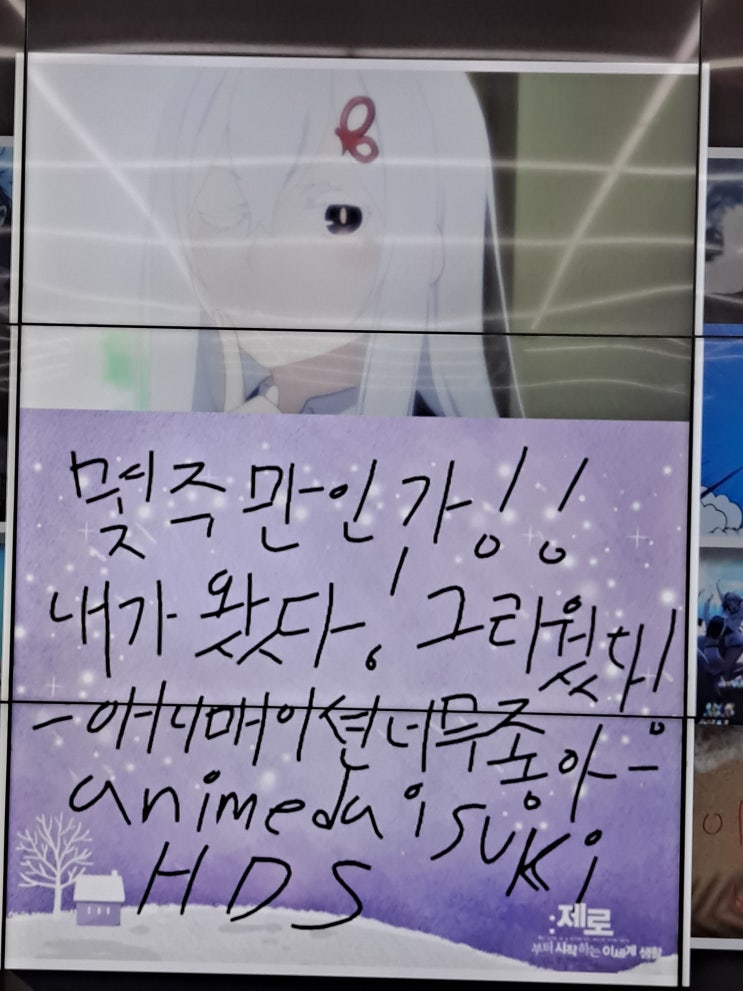 몇주 만인가!!
내가 왔다! 그리웠다!
- 애니메이션 너무 좋아 -
animedaisuki
HDS
:제로
부터 시작하는 이세계 생활